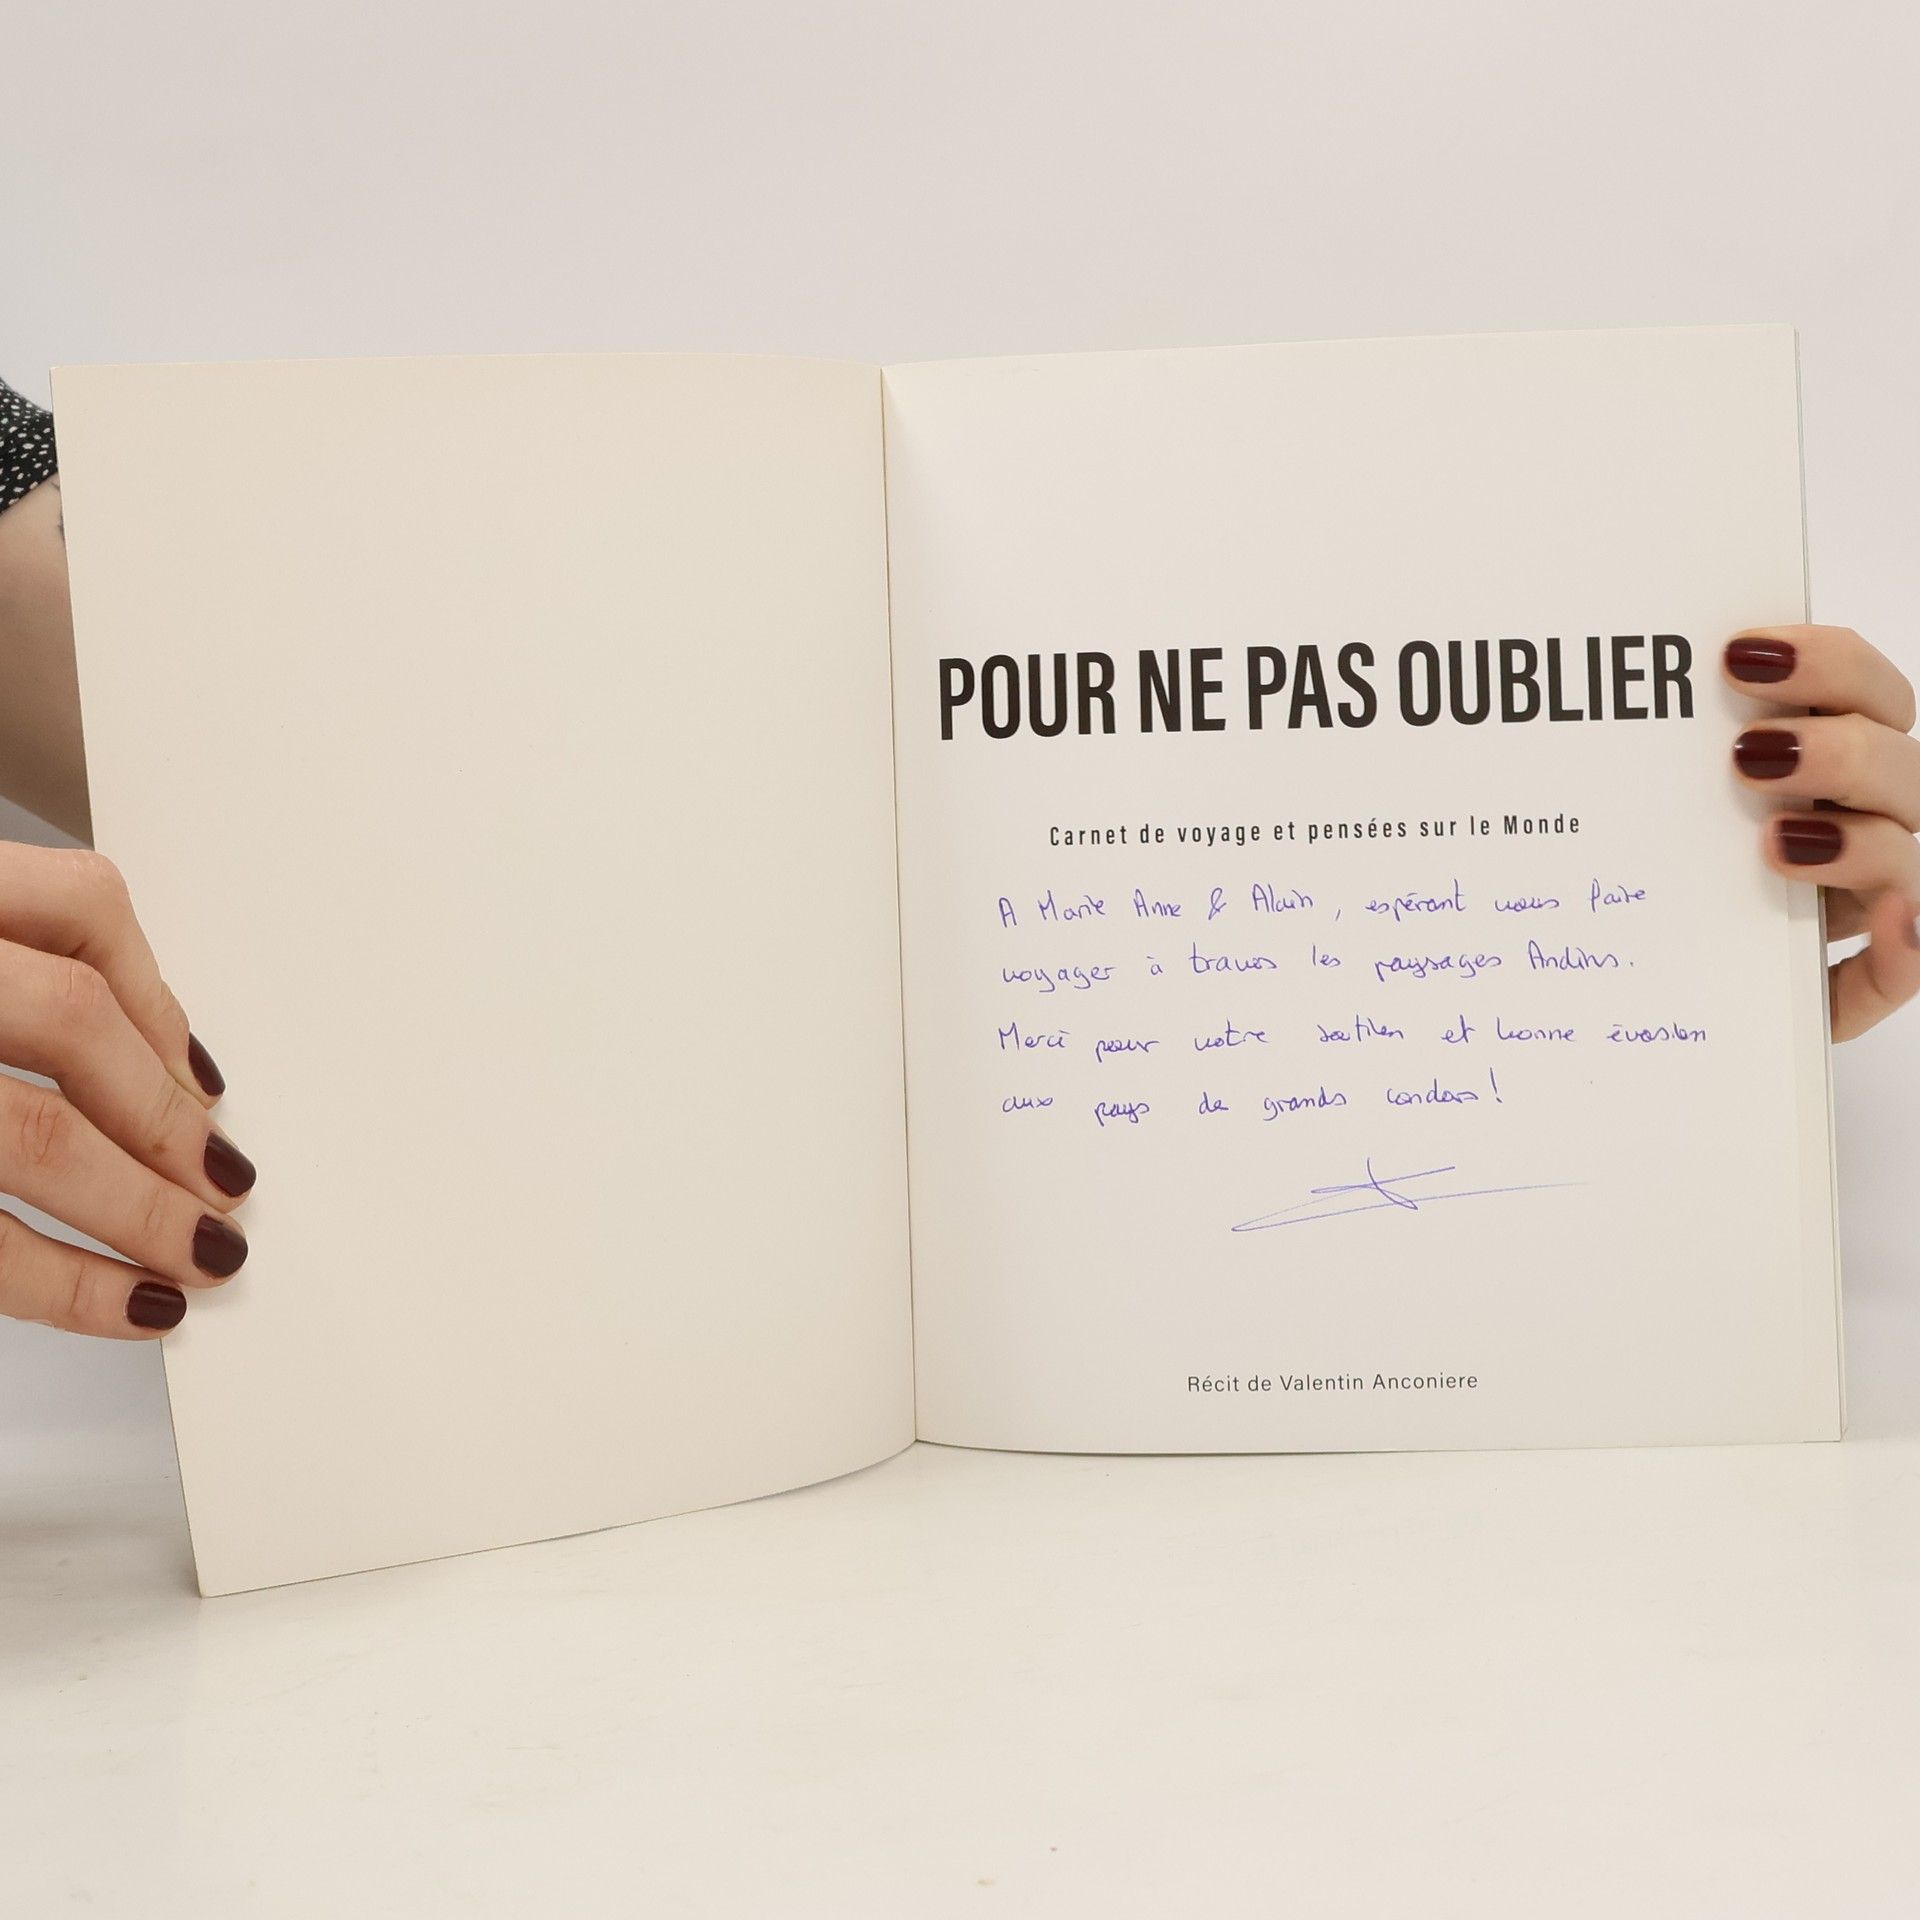 POUR NE PAS OUBLIER
Carnet de voyage et pensées sur le Monde
A Marie Anne & Alain, espérant vous faire
voyager à travers les paysages Andins.
Merci pour votre soutien et bonne évasion
aux pays de grands condors!
Récit de Valentin Anconiere